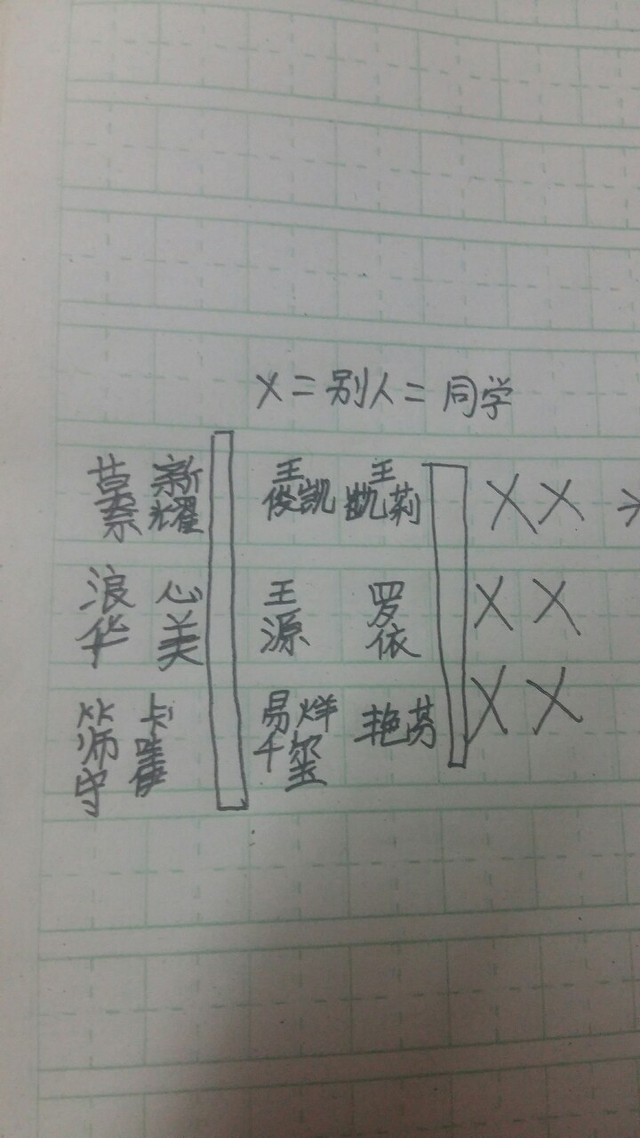 X=别人=同学
新耀 王俊凯 王凯莉 X X
浪华 心美 王源 罗依 X X
师守 易烊千玺 艳芬 X X